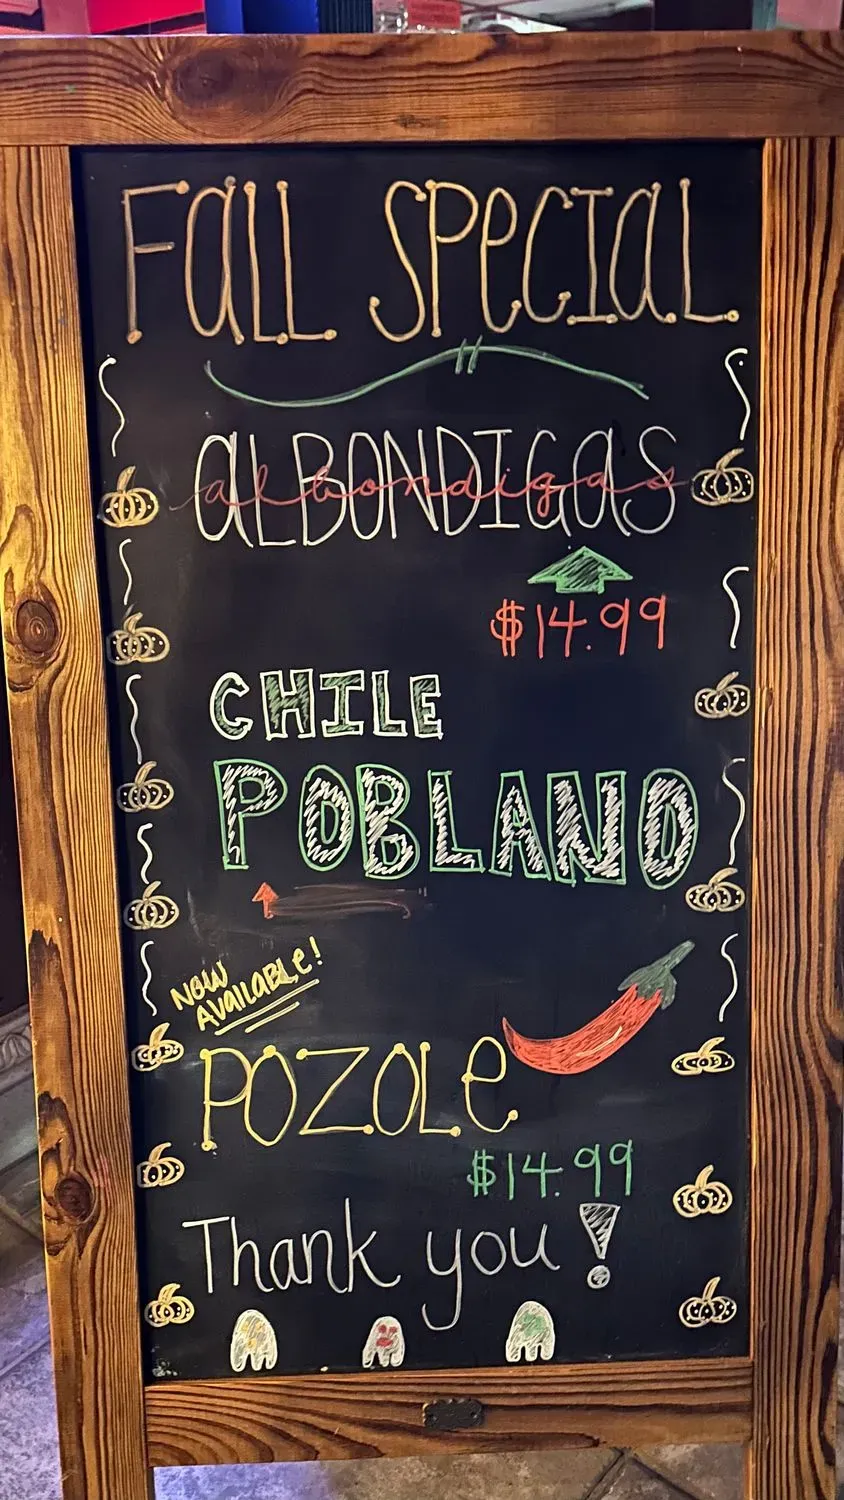 Fall Special
ALBONDIGAS
albondigas
$14.99
CHILE
POBLANO
Now
Available!
POZOLE
$14.99
Thank you!